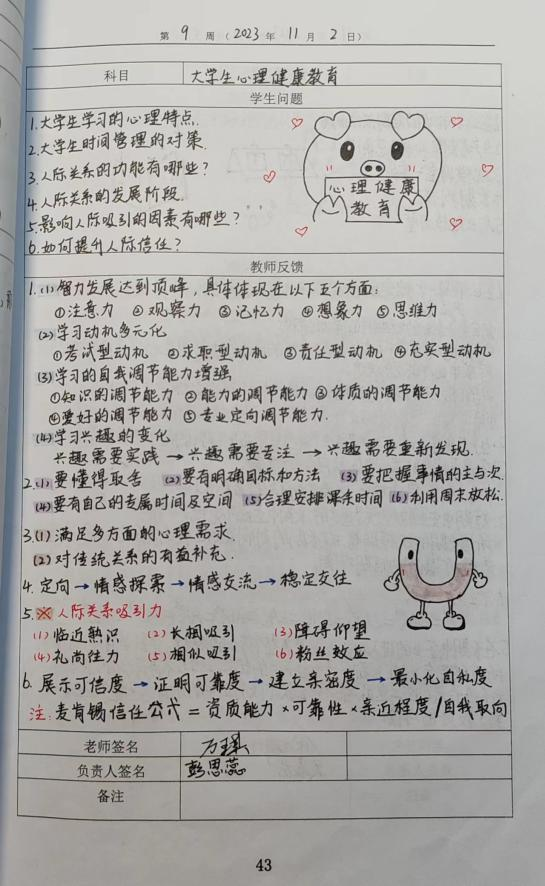 第 9 周（2023 年 11 月 2 日）
科目 大学生心理健康教育
学生问题
1.大学生学习的心理特点.
2.大学生时间管理的对策.
3.人际关系的功能有哪些?
4.人际关系的发展阶段.
5.影响人际吸引的因素有哪些?
6.如何提升人际信任?
心理健康
教育
教师反馈
1.(1)智力发展达到顶峰，具体体现在以下五个方面:
①注意力 ②观察力 ③记忆力 ④想象力 ⑤思维力
(2)学习动机多元化
①考试型动机 ②求职型动机 ③责任型动机 ④充实型动机
(3)学习的自我调节能力增强
①知识的调节能力 ②能力的调节能力 ③体质的调节能力
④爱好的调节能力 ⑤专业定向调节能力.
(4)学习兴趣的变化
兴趣需要实践→兴趣需要专注→兴趣需要重新发现.
2.(1)要懂得取舍 (2)要有明确目标和方法 (3)要把握事情的主与次.
(4)要有自己的专属时间及空间 (5)合理安排课余时间 (6)利用周末放松.
3.(1)满足多方面的心理需求.
(2)对传统关系的有益补充.
4.定向→情感探索→情感交流→稳定交往
5.※人际关系吸引力
(1)临近熟识 (2)长相吸引 (3)障碍仰望
(4)礼尚往力 (5)相似吸引 (6)粉丝效应
6.展示可信度→证明可靠度→建立亲密度→最小化自私度
注:麦肯锡信任公式=资质能力×可靠性×亲近程度/自我取向
老师签名
负责人签名 彭思蕊
备注
43